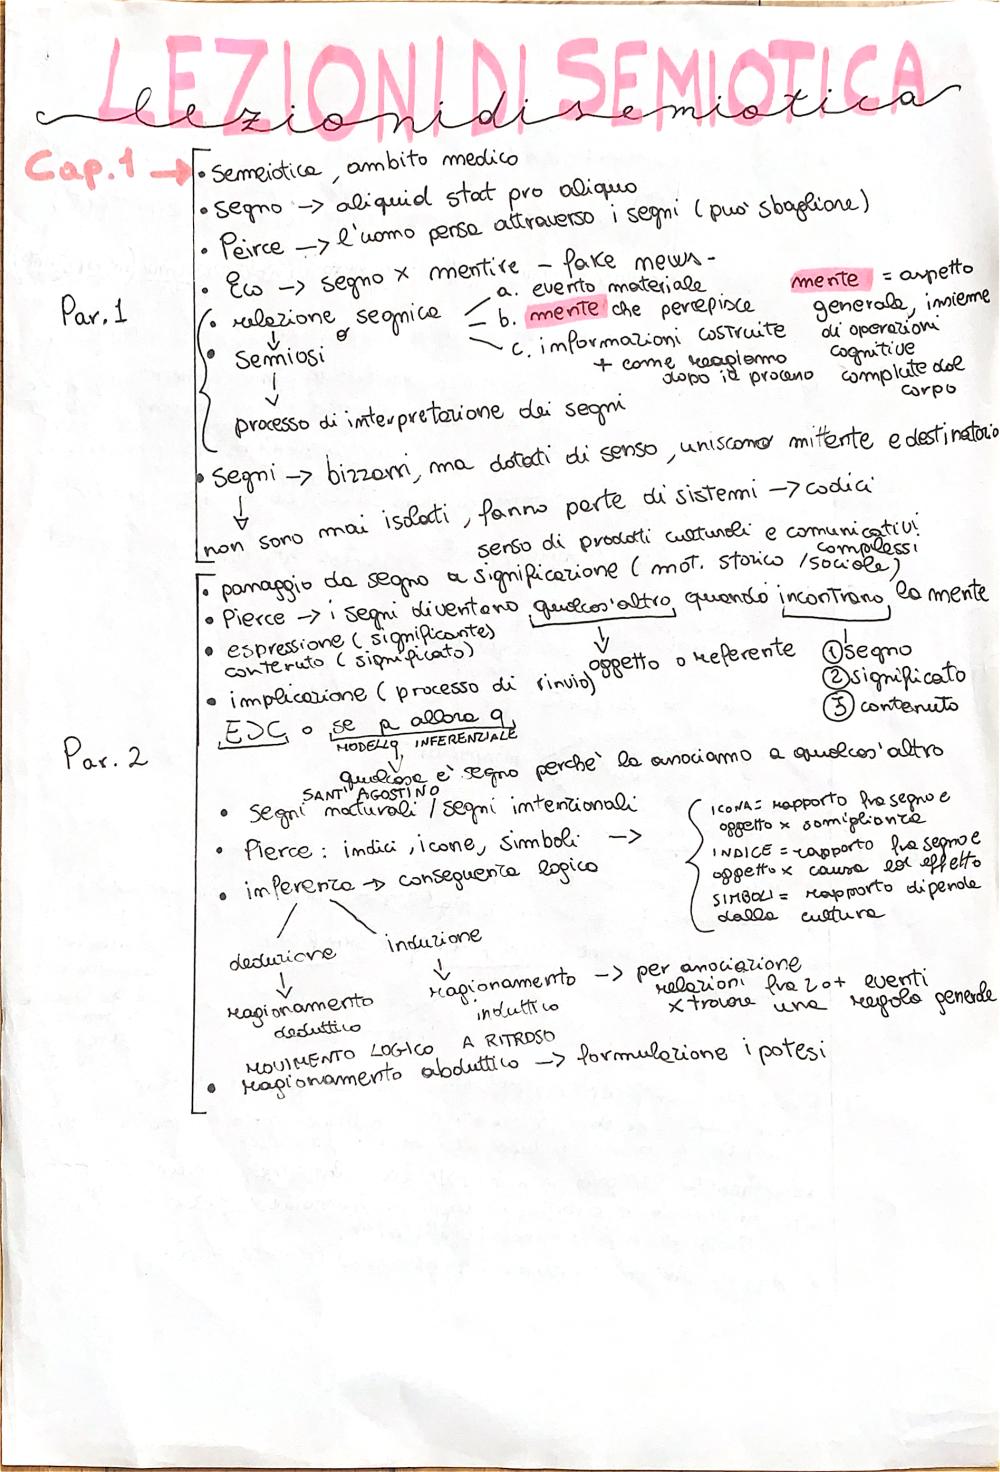 LEZIONI DI SEMIOTICA
lezioni di semiotica
Cap.1 →
• semeiotica, ambito medico
• segno -> aliquid stat pro aliquo
• Peirce -> l'uomo pensa attraverso i segni (può sbagliare)
• Eco -> segno x mentire - fake news -
Par.1
• relazione segnica
a. evento materiale
b. mente che percepisce
c. informazioni costruite
+ come reagiamo
dopo il processo
mente = aspetto
generale, insieme
di operazioni
cognitive
compiute dal
corpo
• Semiosi
processo di interpretazione dei segni
• Segni -> bizzarri, ma dotati di senso, uniscono mittente e destinatario
non sono mai isolati, fanno parte di sistemi -> codici
senso di prodotti culturali e comunicativi
complessi
Par. 2
• passaggio da segno a significazione (mot. storico / sociale)
• Pierce -> i segni diventano qualcos'altro quando incontrano la mente
oggetto o referente
① segno
② significato
③ contenuto
• espressione (significante)
contenuto (significato)
• implicazione (processo di rinvio)
EƆC o se p allora q
MODELLO INFERENZIALE
qualcosa è segno perchè la associamo a qualcos'altro
SANT'AGOSTINO
• segni naturali / segni intenzionali
• Pierce: indici, icone, simboli ->
ICONA = rapporto fra segno e
oggetto x somiglianza
INDICE = rapporto fra segno e
oggetto x causa ed effetto
SIMBOLI = rapporto dipende
dalla cultura
• inferenza -> conseguenza logica
deduzione
ragionamento
deduttivo
induzione
ragionamento
induttivo
-> per associazione
relazioni fra 2 o + eventi
x trovare una regola generale
MOVIMENTO LOGICO A RITROSO
• ragionamento abduttivo -> formulazione ipotesi